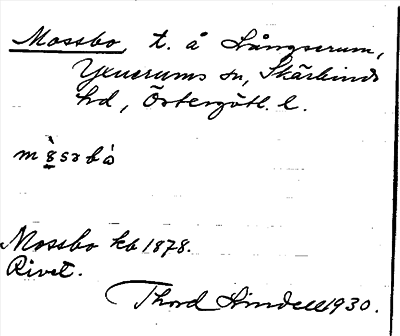 Mossbo, t. å Långserum,
Yxnerums sn, Skärkinds
hd, Östergötl. l.
Mossbo kb 1878.
Rivet.
Thord Lindell 1930.